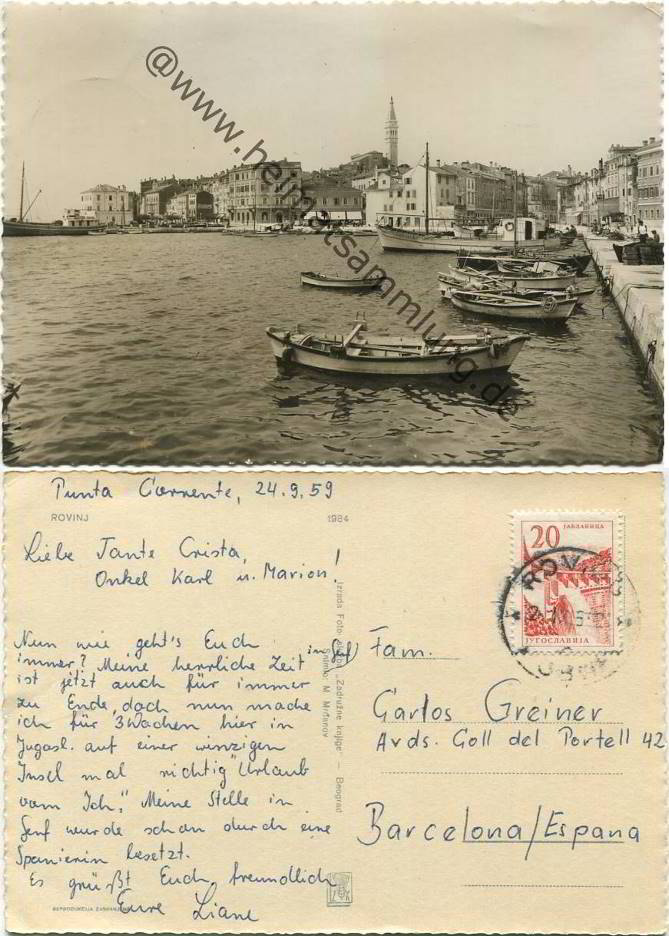 @www.heimatsammlung.de
Punta Corrente, 24.9.59
ROVINJ
1984
Liebe Tante Crista,
Onkel Karl u. Marion!
Nun wie geht's Euch
immer? Meine herrliche Zeit in Genf
ist jetzt auch für immer
zu Ende, doch nun mache
ich für 3 Wochen hier in
Jugosl. auf einer winzigen
Insel mal richtig "Urlaub
vom Ich". Meine Stelle in
Genf wurde schon durch eine
Spanierin besetzt.
Es grüßt Euch freundlich
Eure Liane
REPRODUKCIJA ZABRANJENA
Izrada Foto "Zadružne knjige" — Beograd
Snimio: M. Mrđanov
20
ЈАБЛАНИЦА
ЈУГОСЛАВИЈА
Fam.
Carlos Greiner
Avds. Coll del Portell 42
Barcelona/Espana